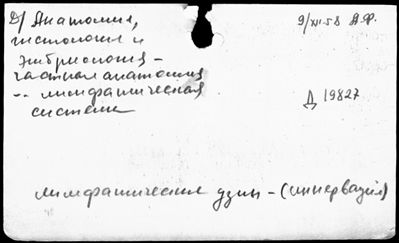 Д/ Анатомия, 9/XII-58 А.Ф.
гистология и
эмбриология -
частная анатомия
-- лимфатическая Д 19827
система
лимфатические узлы - (иннервация)